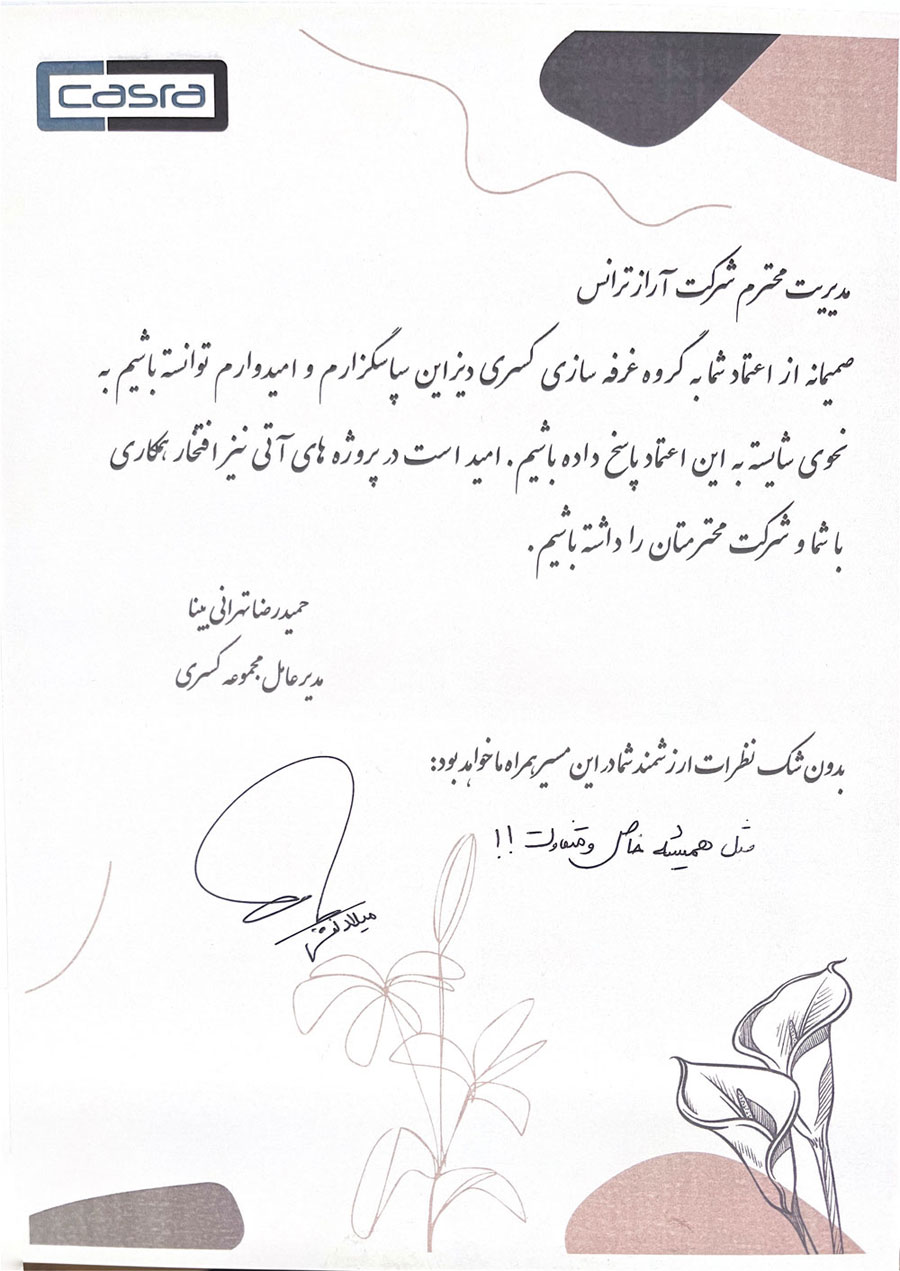 casra
مدیریت محترم شرکت آراز ترانس
صمیمانه از اعتماد شما به گروه غرفه سازی کسری دیزاین سپاسگزارم و امیدوارم توانسته باشیم به
نحوی شایسته به این اعتماد پاسخ داده باشیم. امید است در پروژه های آتی نیز افتخار همکاری
با شما و شرکت محترمتان را داشته باشیم.
حمیدرضا تهرانی بینا
مدیر عامل مجموعه کسری
بدون شک نظرات ارزشمند شما در این مسیر همراه ما خواهد بود:
مثل همیشه خاص و متفاوت !!
میلاد